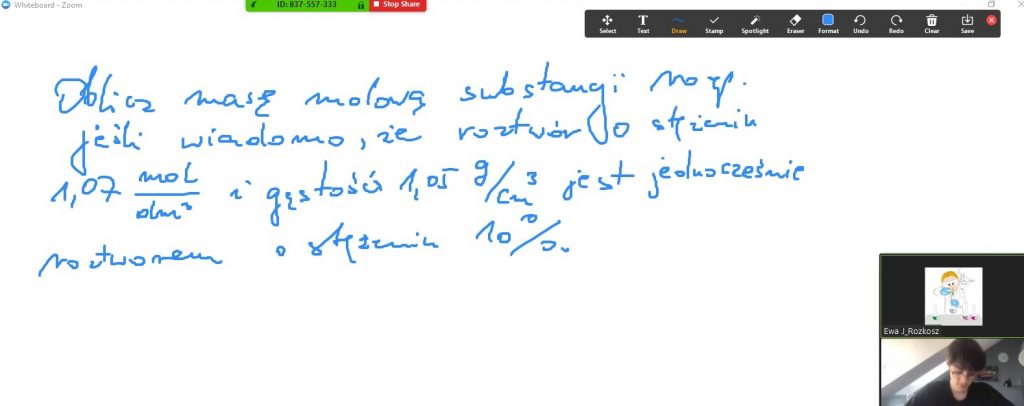 Whiteboard - Zoom
ID: 837-557-333
Stop Share
Select Text Draw Stamp Spotlight Eraser Format Undo Redo Clear Save
Oblicz masę molową substancji rozp.
jeśli wiadomo, że roztwór o stężeniu
1,07 mol/dm³ i gęstości 1,05 g/cm³ jest jednocześnie
roztworem o stężeniu 10%.
Ewa J_Rozkosz